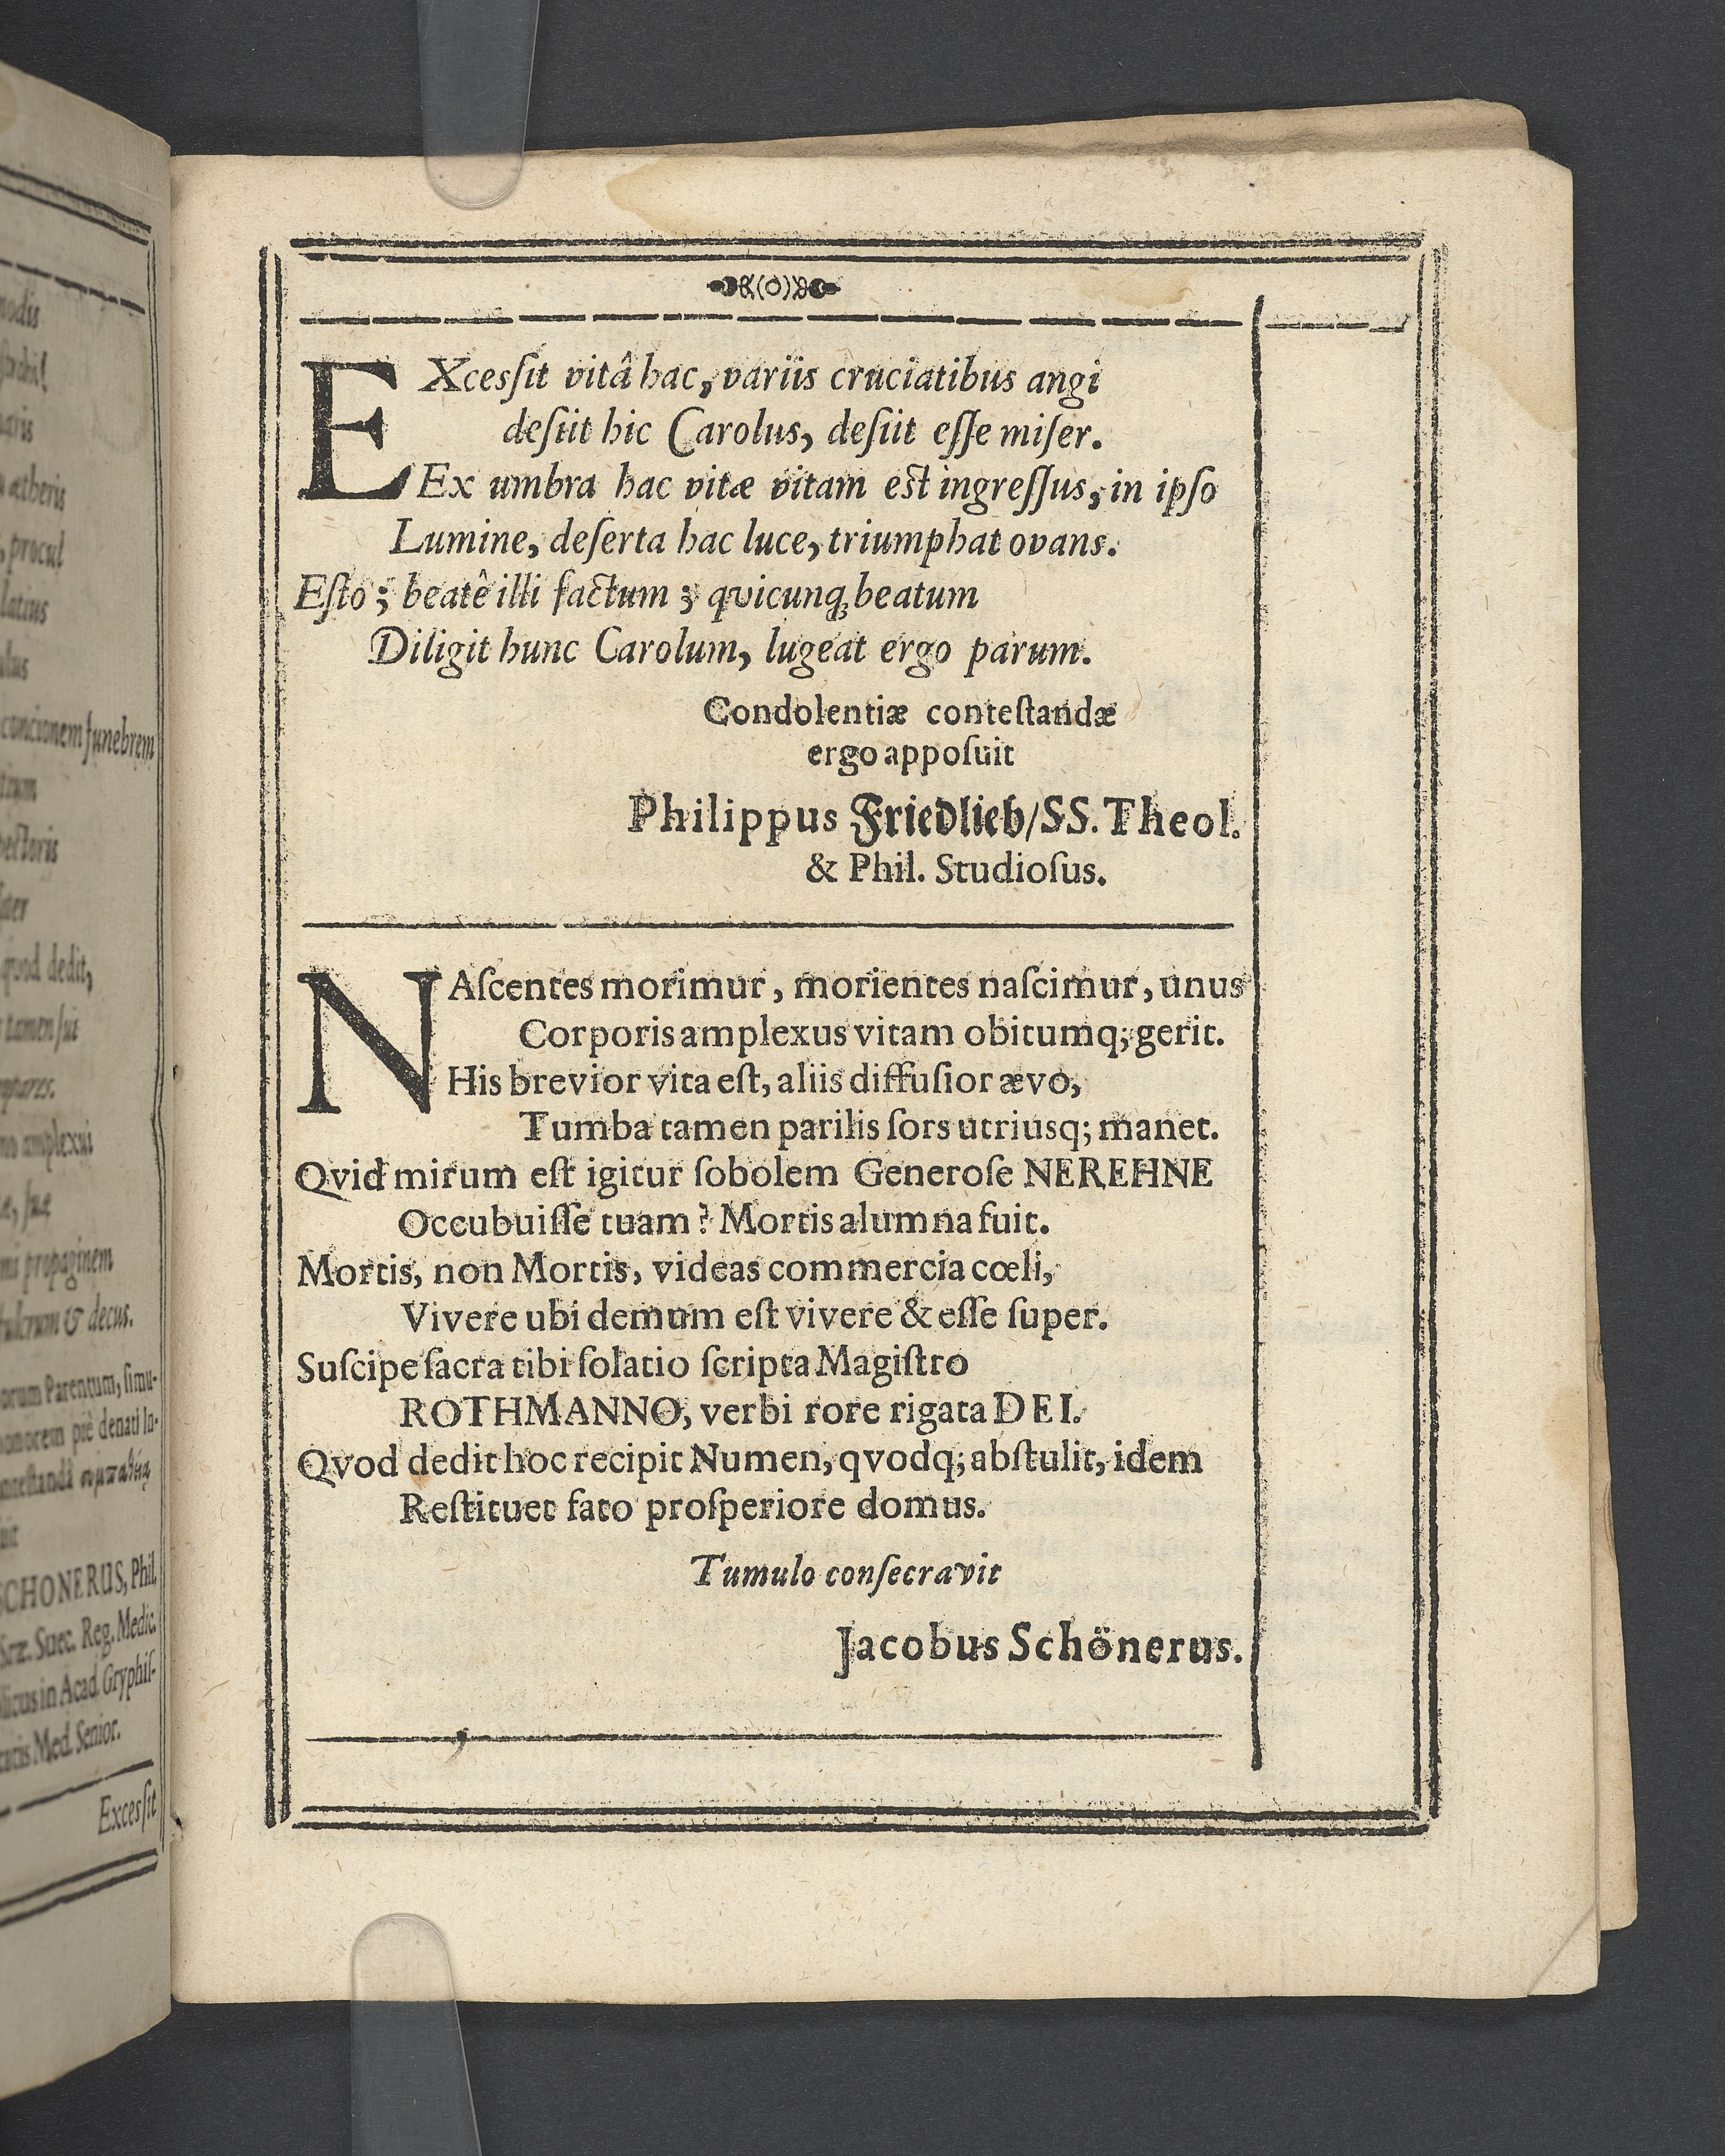 modis
aris
ætheris
, procul
latius
concionem funebrem
pectoris
quod dedit,
tamen sic
mpares.
no amplexu
mi propaginem
fulcrum & decus.
orum Parentum, ſimu-
honorem piè denati
SCHONERUS, Phil.
Suec. Reg. Medic.
in Acad. Gryphiſ-
Med. Senior.
Exceſſit
EXceſſit vitâ hac, variis cruciatibus angi
deſiit hic Carolus, deſiit eſſe miſer.
Ex umbra hac vitæ vitam eſt ingreſſus, in ipſo
Lumine, deſerta hac luce, triumphat ovans.
Eſto; beatê illi factum; qvicunq; beatum
Diligit hunc Carolum, lugeat ergo parum.
Condolentiæ conteſtandæ
ergo appoſuit
Philippus Friedlieb/SS. Theol.
& Phil. Studioſus.
NAſcentes morimur, morientes naſcimur, unus
Corporis amplexus vitam obitumq; gerit.
His brevior vita eſt, aliis diffuſior ævo,
Tumba tamen parilis ſors utriusq; manet.
Qvid mirum eſt igitur ſobolem Generoſe NEREHNE
Occubuiſſe tuam? Mortis alumna fuit.
Mortis, non Mortis, videas commercia cœli,
Vivere ubi demum eſt vivere & eſſe ſuper.
Suſcipe ſacra tibi ſolatio ſcripta Magiſtro
ROTHMANNO, verbi rore rigata DEI.
Qvod dedit hoc recipit Numen, qvodq; abſtulit, idem
Reſtituet fato proſperiore domus.
Tumulo conſecravit
Jacobus Schönerus.